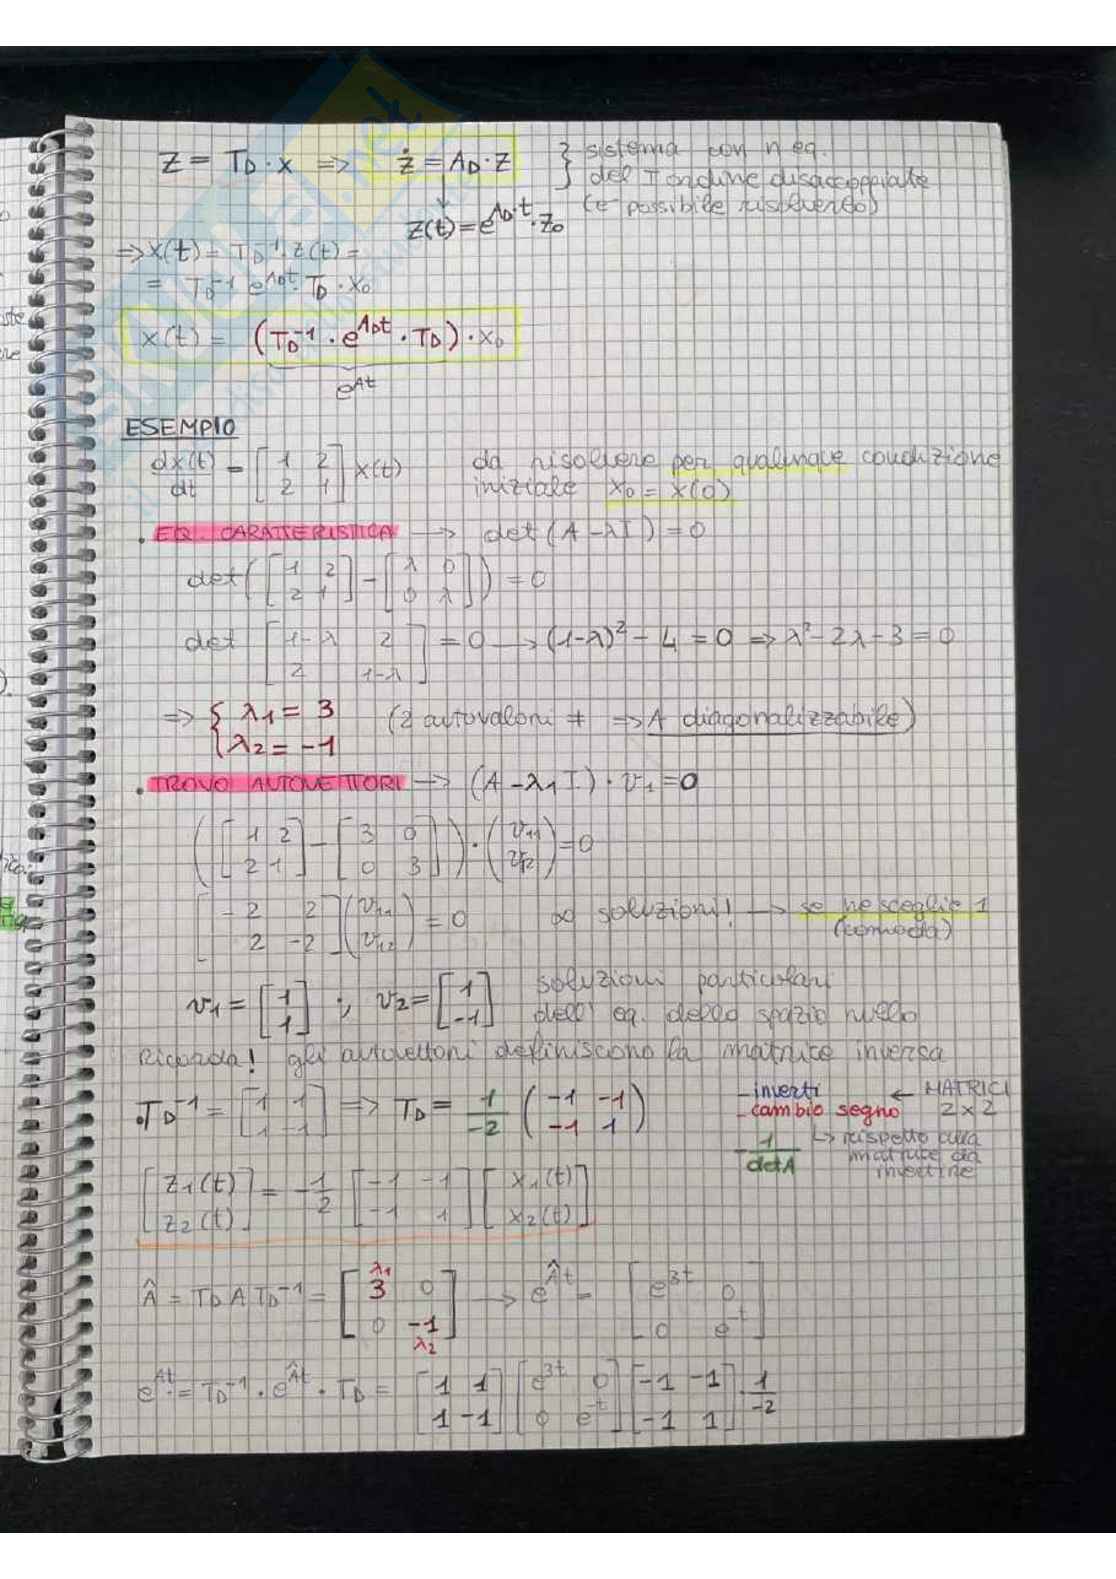 Z = T_D · x => ż = Λ_D · Z } sistema con n eq.
del I ordine disaccoppiate
(è possibile risolverlo)
↓
Z(t) = e^{Λ_D·t} · Z_0
=> x(t) = T_D^{-1} · Z(t) =
= T_D^{-1} e^{Λ_D t} · T_D · x_0
x(t) = (T_D^{-1} · e^{Λ_D t} · T_D) · x_0
e^{At}
ESEMPIO
dx(t)/dt = [1 2; 2 1] x(t) da risolvere per qualunque condizione
iniziale x_0 = x(0)
• EQ. CARATTERISTICA → det(A - λI) = 0
det([1 2; 2 1] - [λ 0; 0 λ]) = 0
det [1-λ 2; 2 1-λ] = 0 → (1-λ)² - 4 = 0 => λ² - 2λ - 3 = 0
=> { λ_1 = 3 (2 autovalori ≠ => A diagonalizzabile)
λ_2 = -1
• TROVO AUTOVETTORI → (A - λ_1 I) · v_1 = 0
([1 2; 2 1] - [3 0; 0 3]) · (v_11; v_12) = 0
[-2 2; 2 -2] (v_11; v_12) = 0 ∞ soluzioni! → se ne sceglie 1
(comoda)
v_1 = [1; 1] ; v_2 = [1; -1] soluzioni particolari
dell' eq. dello spazio nullo
Ricorda! gli autovettori definiscono la matrice inversa
• T_D^{-1} = [1 1; 1 -1] => T_D = 1/-2 (-1 -1; -1 1)
- inverti ← MATRICI
- cambio segno 2x2
- 1/detA ↳ rispetto alla
matrice da
invertire
[z_1(t); z_2(t)] = -1/2 [-1 -1; -1 1] [x_1(t); x_2(t)]
λ_1
Â = T_D A T_D^{-1} = [3 0; 0 -1] → e^{Ât} = [e^{3t} 0; 0 e^{-t}]
λ_2
e^{At} = T_D^{-1} · e^{Ât} · T_D = [1 1; 1 -1] [e^{3t} 0; 0 e^{-t}] [-1 -1; -1 1] 1/-2